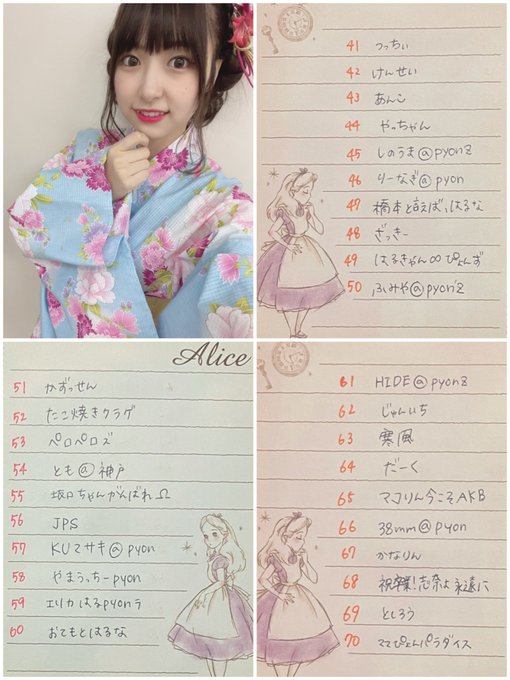 41 つっちぃ
42 けんせい
43 あんこ
44 やっちゃん
45 しのうま@pyonz
46 りーなぎ@pyon
47 橋本と言えば、はるな
48 ざっきー
49 はるきゃん∞ぴょんず
50 ふみや@pyon'z
Alice
51 かずっせん
52 たこ焼きクラゲ
53 ペロペロズ
54 とも@神戸
55 坂口ちゃんがんばれΩ
56 JPS
57 KUマサキ@pyon
58 やまうっちーpyon
59 エリカはるpyonラ
60 おてもとはるな
61 HIDE@pyonz
62 じゅんいち
63 寒風
64 だーく
65 マコりん今こそAKB
66 38mm@pyon
67 かなりん
68 祝卒業!志奈よ永遠に
69 としろう
70 ててぴょんパラダイス